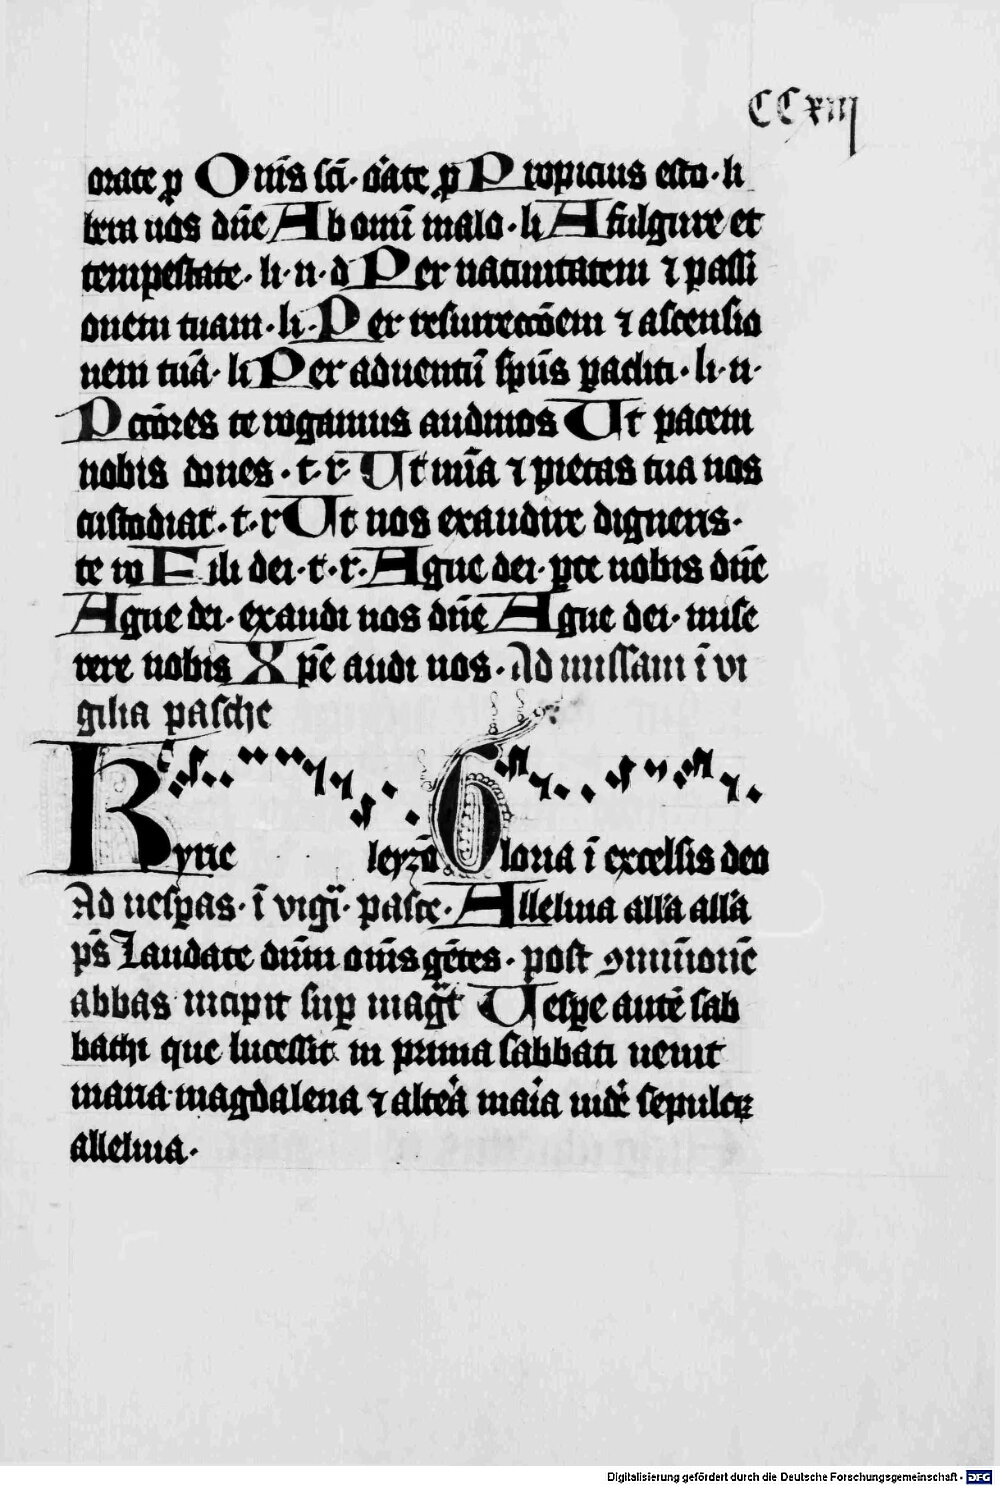 CCxiij
orate ꝓ Om̄s sc̄i· or̄ate ꝓ Propicius esto· li
bera nos dn̄e Ab omī malo· li A fulgure et
tempestate· li· n· d Per natiuitatem ⁊ passi
onem tuam· li· Per resurrecc̄oem ⁊ ascensio
nem tuā· li Per aduentū sp̄us ꝑacliti· li· n·
Pctōres te rogamus audinos Ut pacem
nobis dones· t· r· Ut mīa ⁊ pietas tua nos
custodiat· t· r Ut nos exaudire digneris·
te ro Fili dei· t· r· Agne dei· ꝑce nobis dn̄e
Agne dei· exaudi nos dn̄e Agne dei· mise
rere nobis Xp̄e audi nos· Ad missam ī vi
gilia pasche
Kyrie leyzō Gloria ī excelsis deo
Ad vesꝑas· ī vigī· pasce· Alleluia all'a all'a
p̄s Laudate dn̄m om̄s gētes· post ꝯmuniōnē
abbas incipit suꝑ magt̄ Vesꝑe autē sab
bathi que lucessit in prima sabbati uenit
maria magdalena ⁊ altera maria uidē sepulcꝝ
alleluia·
Digitalisierung gefördert durch die Deutsche Forschungsgemeinschaft · DFG